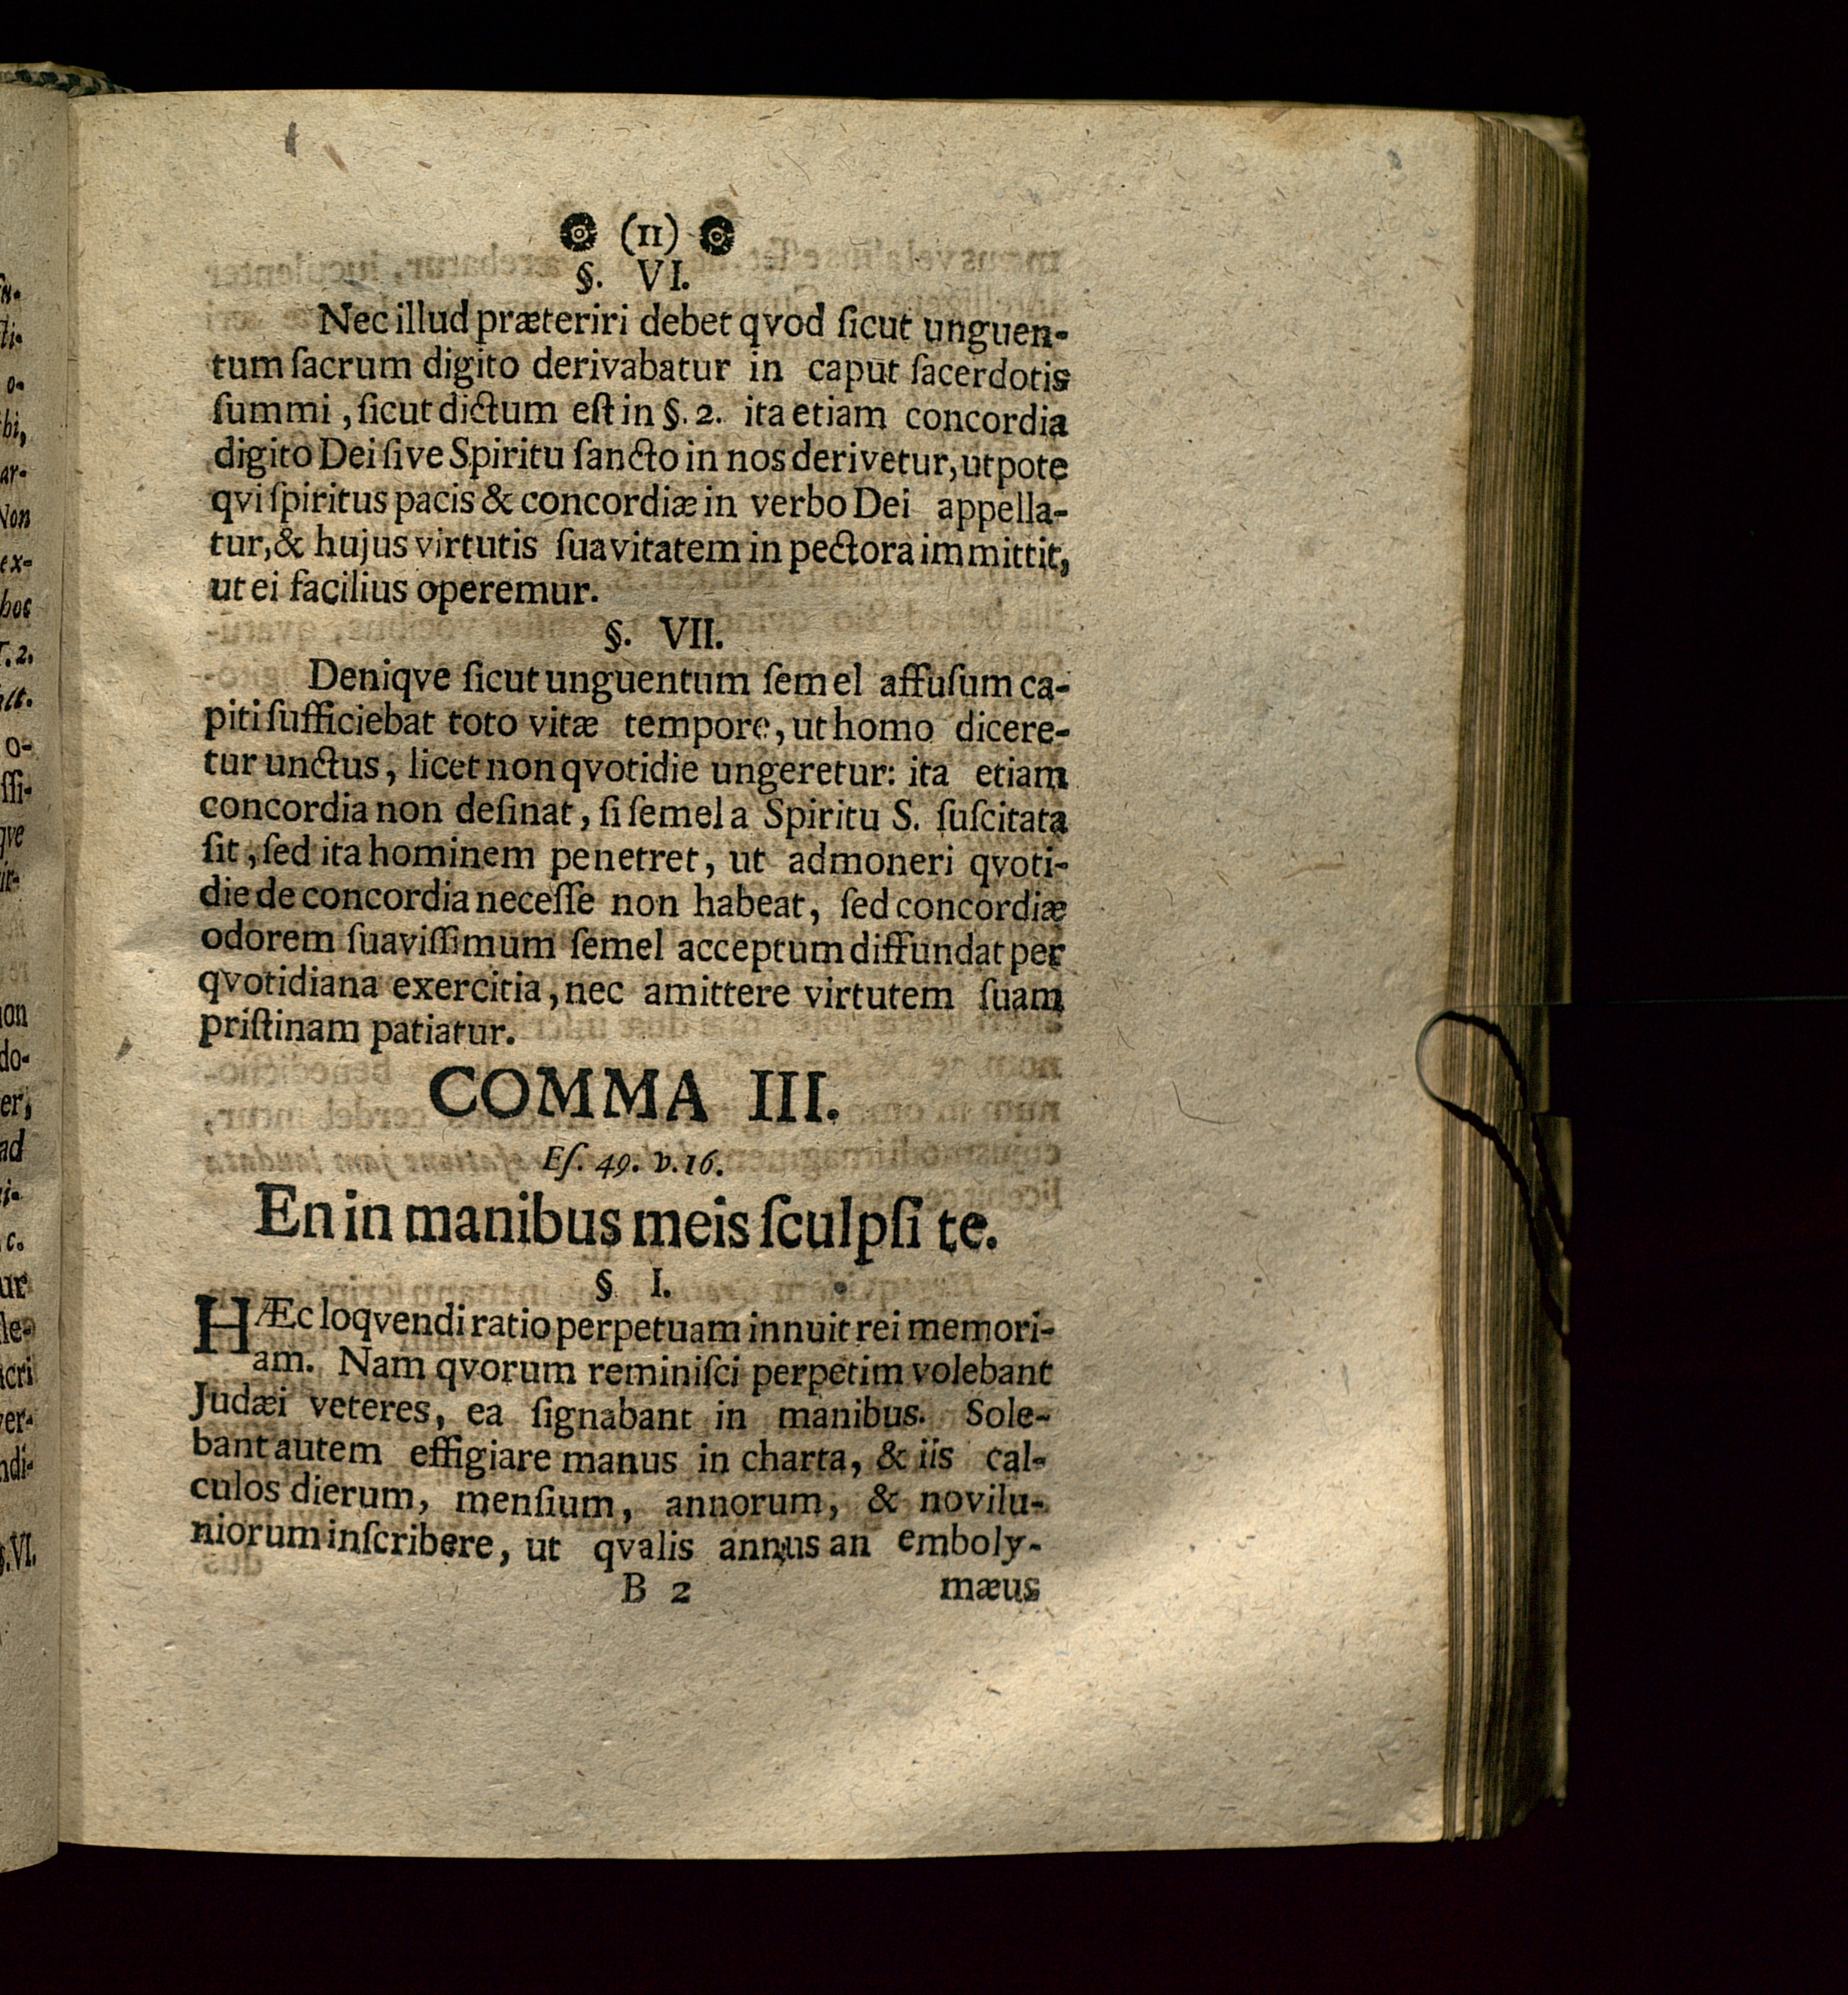 (11)
§. VI.
Nec illud præteriri debet qvod ſicut unguen-
tum ſacrum digito derivabatur in caput ſacerdotis
ſummi, ſicut dictum eſt in §. 2. ita etiam concordia
digito Dei ſive Spiritu ſancto in nos derivetur, utpote
qvi ſpiritus pacis & concordiæ in verbo Dei appella-
tur, & hujus virtutis ſuavitatem in pectora immittit,
ut ei facilius operemur.
§. VII.
Deniqve ſicut unguentum ſemel affuſum ca-
piti ſufficiebat toto vitæ tempore, ut homo dicere-
tur unctus, licet non qvotidie ungeretur: ita etiam
concordia non deſinat, ſi ſemel a Spiritu S. ſuſcitata
ſit, ſed ita hominem penetret, ut admoneri qvoti-
die de concordia neceſſe non habeat, ſed concordiæ
odorem ſuaviſſimum ſemel acceptum diffundat per
qvotidiana exercitia, nec amittere virtutem ſuam
priſtinam patiatur.
COMMA III.
Eſ. 49. v. 16.
En in manibus meis ſculpſi te.
§ I.
HÆc loqvendi ratio perpetuam innuit rei memori-
am. Nam qvorum reminiſci perpetim volebant
Judæi veteres, ea ſignabant in manibus. Sole-
bant autem effigiare manus in charta, & iis cal-
culos dierum, menſium, annorum, & novilu-
niorum inſcribere, ut qvalis annus an emboly-
B 2 mæus